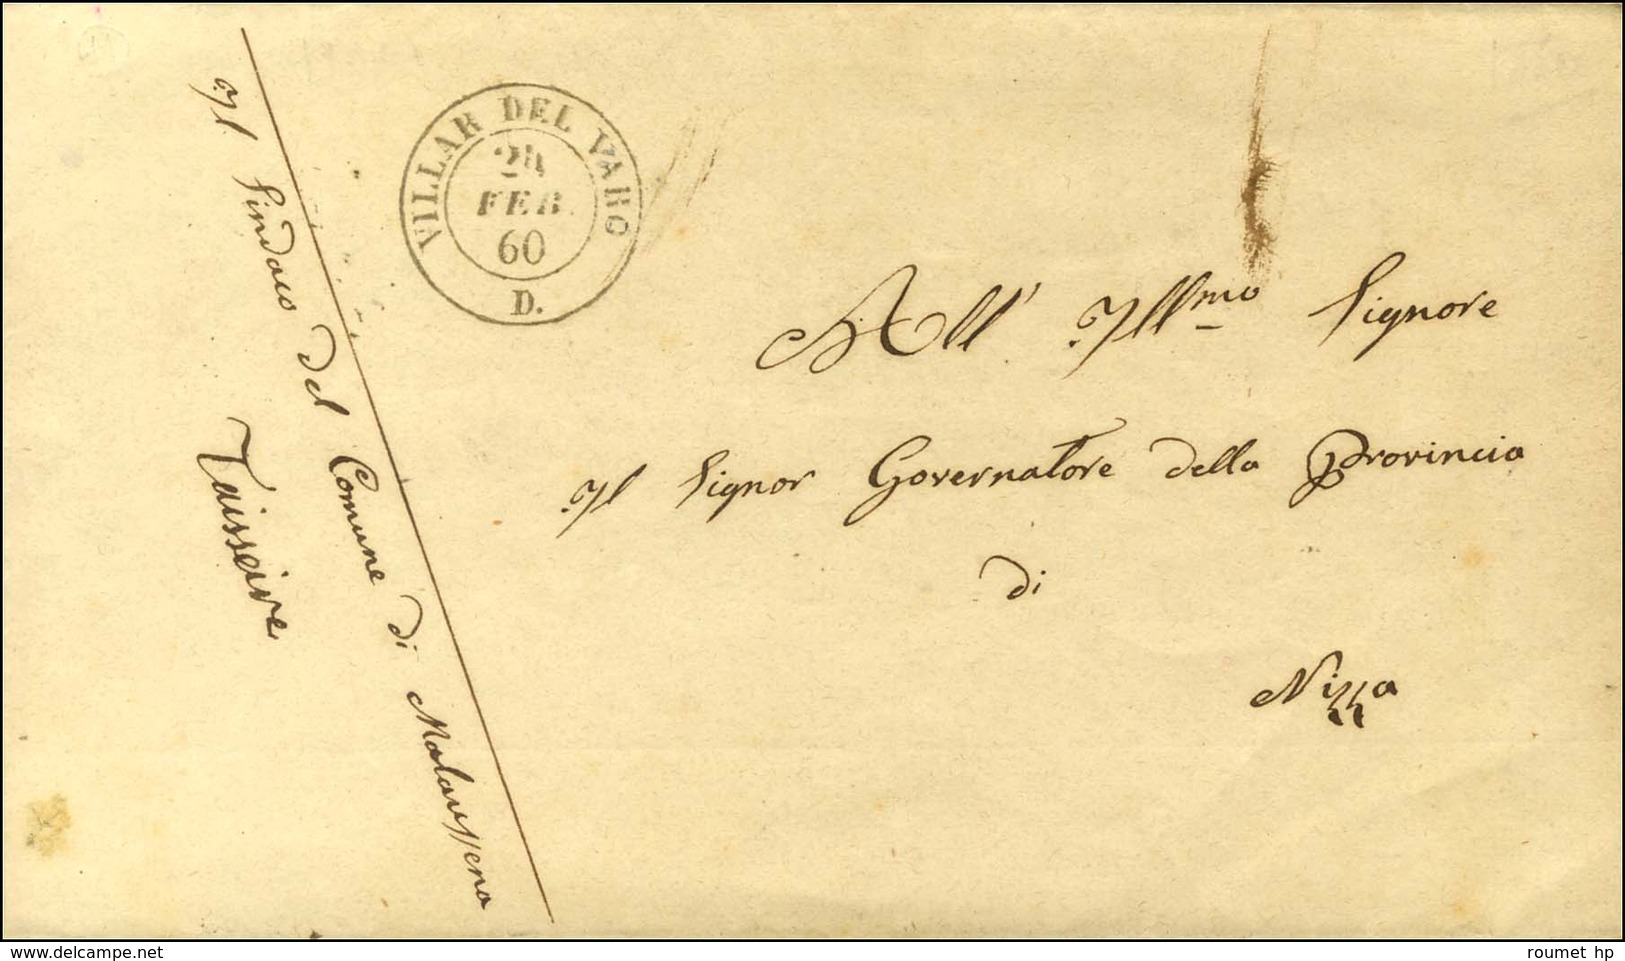 VILLAR DEL VARO
24
FEB
60
D.
Il Sindaco del Comune di Malaussena
Taisseire
All' Illmo Signore
Il Signor Governatore della Provincia
di
Nizza
delcampe.net
roumet hp